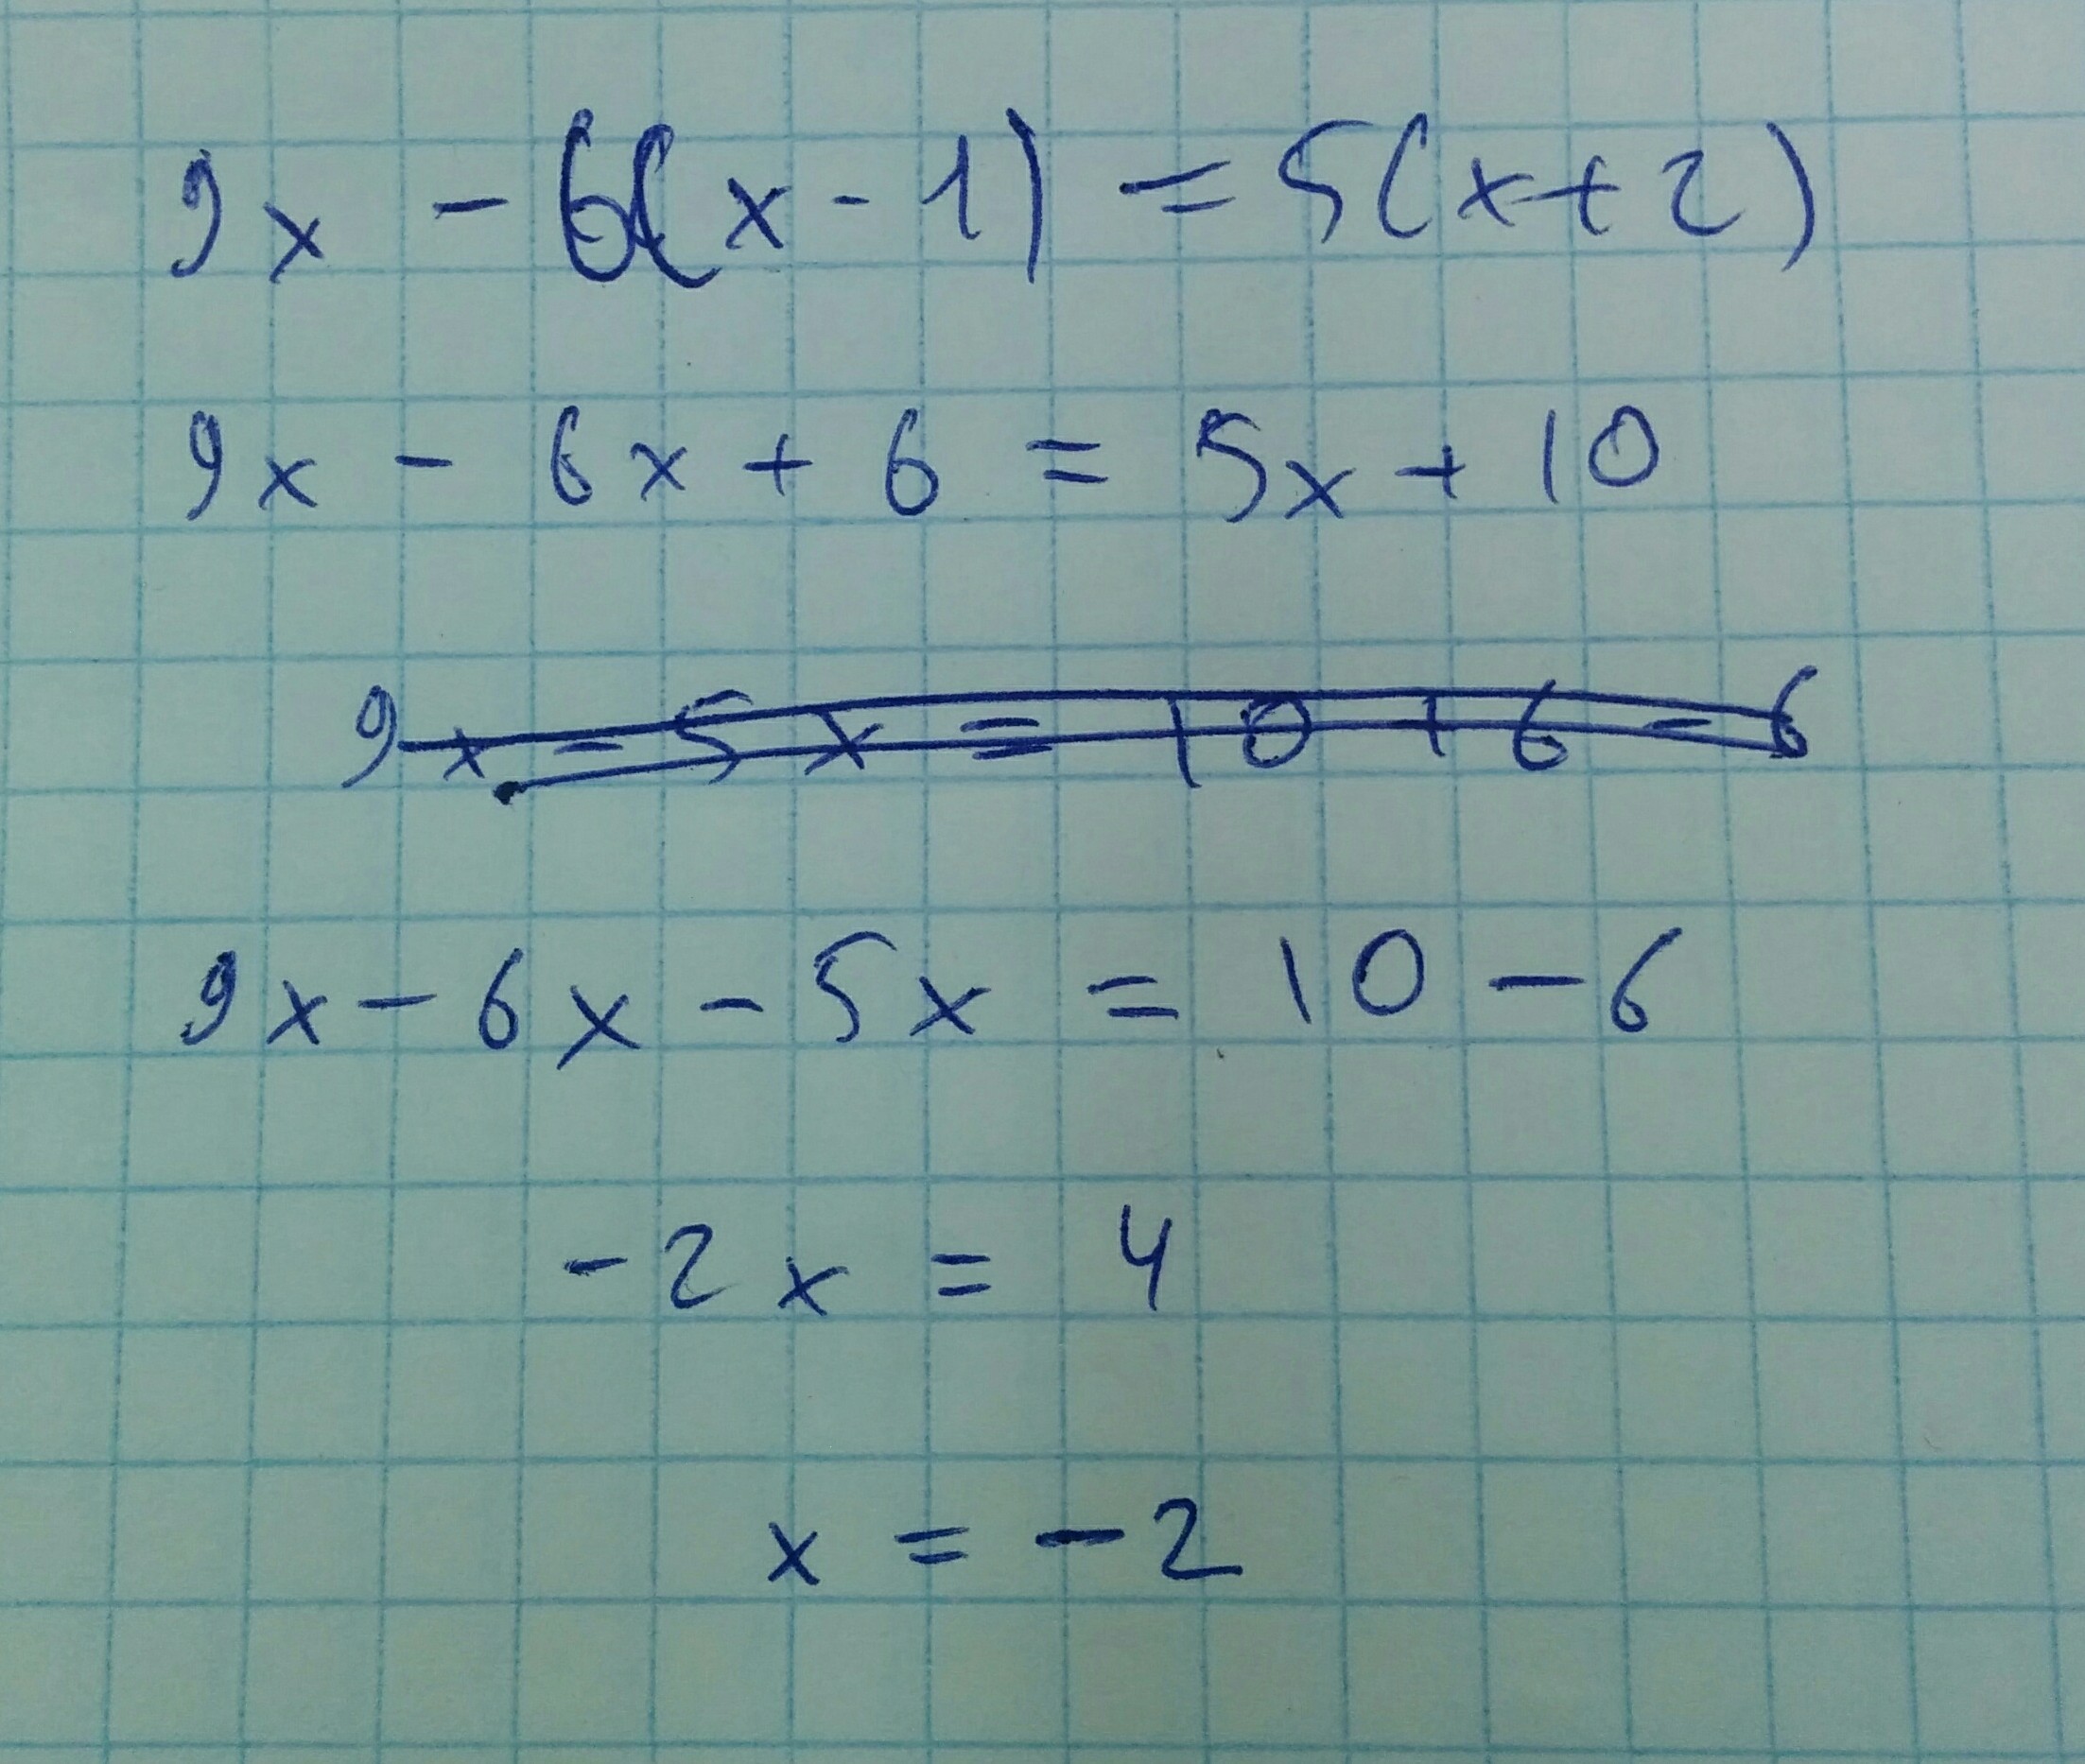 9x - 6(x - 1) = 5(x + 2)
9x - 6x + 6 = 5x + 10
9x - 5x = 10 + 6 - 6
9x - 6x - 5x = 10 - 6
-2x = 4
x = -2